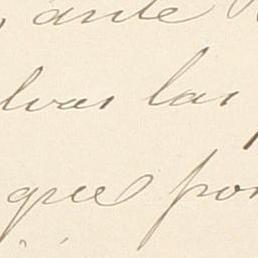 ante
lvas las
que por